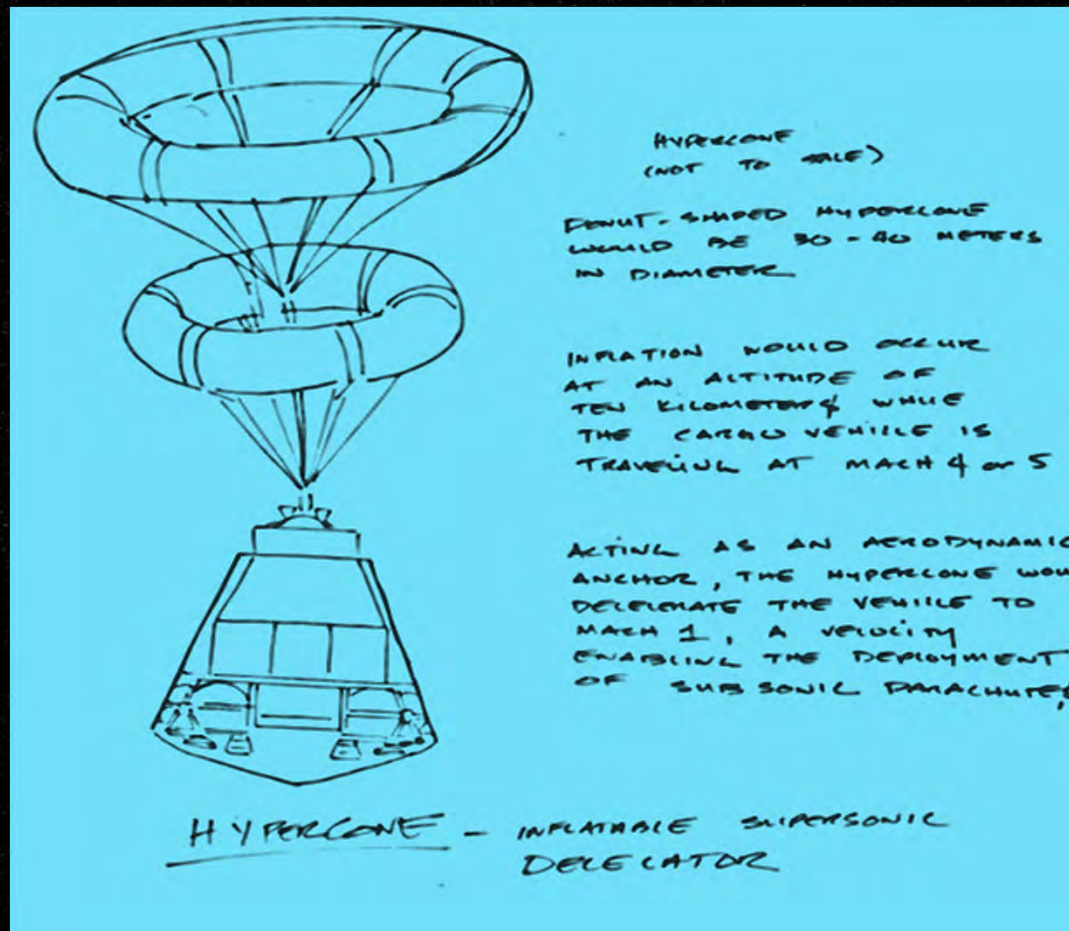 HYPERCONE
(NOT TO SCALE)
DONUT-SHAPED HYPERCONE
WOULD BE 30-40 METERS
IN DIAMETER
INFLATION WOULD OCCUR
AT AN ALTITUDE OF
TEN KILOMETERS WHILE
THE CARGO VEHICLE IS
TRAVELING AT MACH 4 or 5
ACTING AS AN AERODYNAMIC
ANCHOR, THE HYPERCONE WOU
DECELERATE THE VEHICLE TO
MACH 1, A VELOCITY
ENABLING THE DEPLOYMENT
OF SUBSONIC PARACHUTES
HYPERCONE - INFLATABLE SUPERSONIC
DECELERATOR